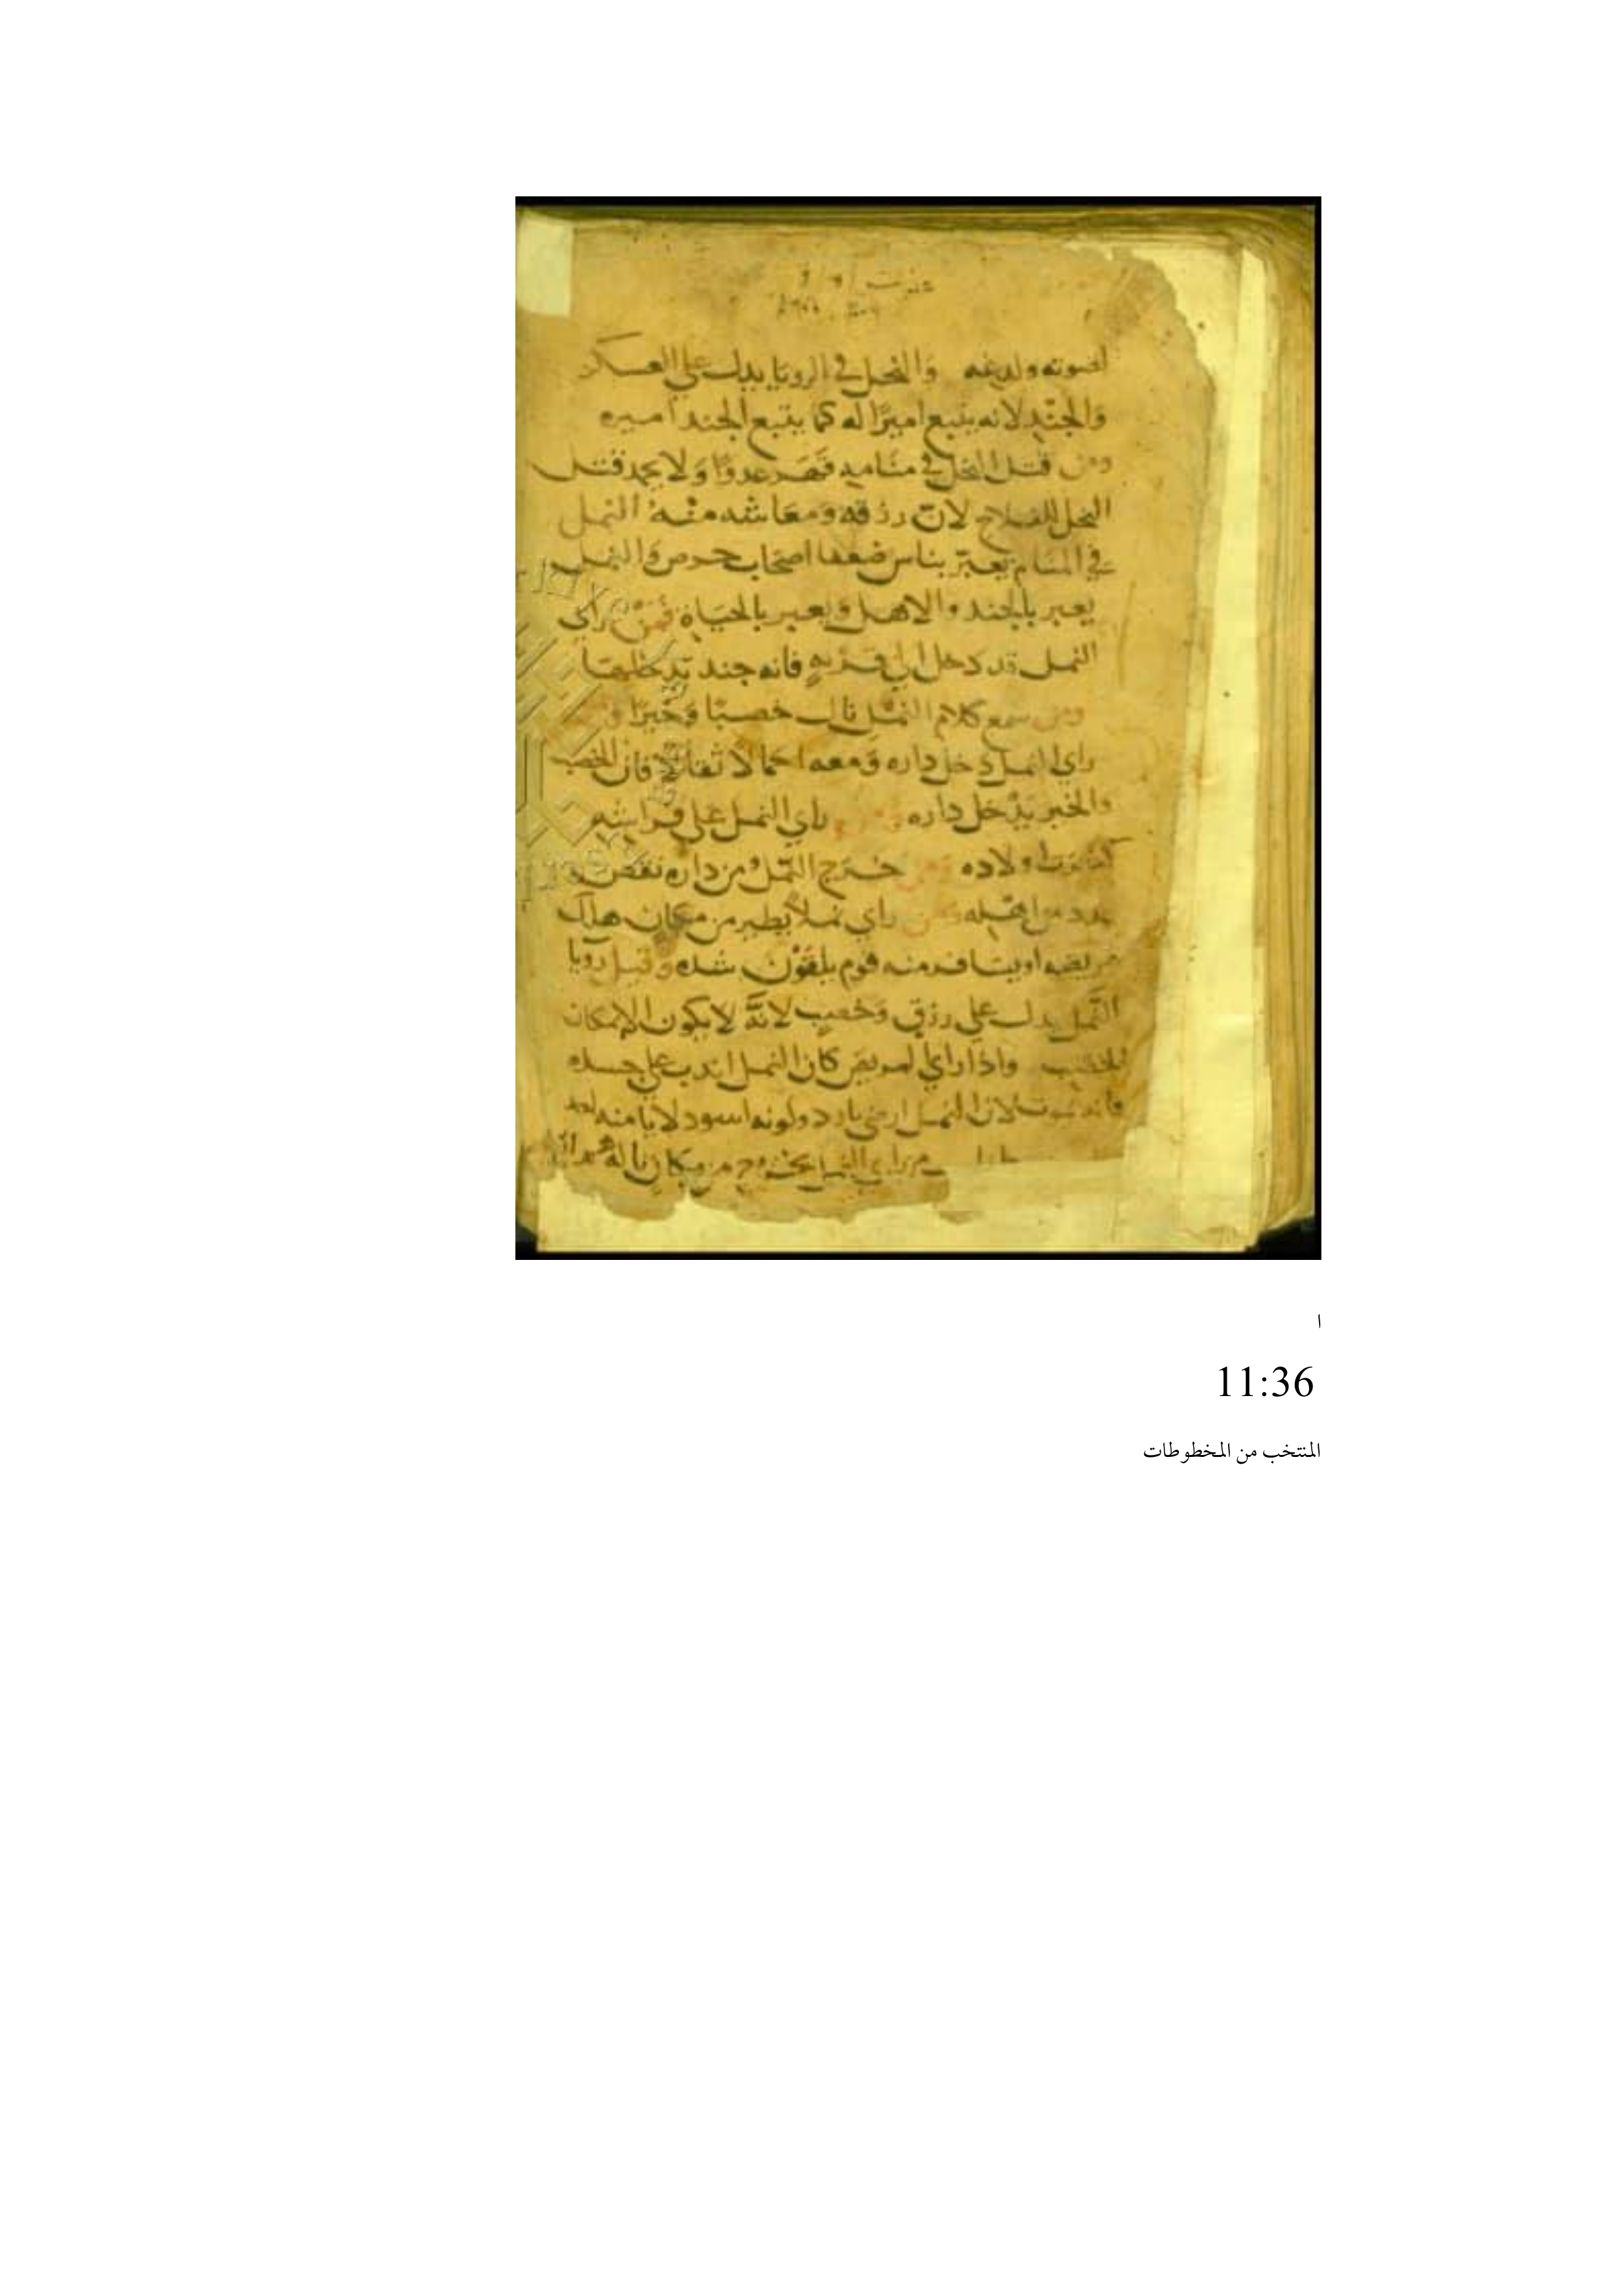 لصوته ولدغه والنحل في الرويا يدل علي العسكر
وَالجنْدِ لانه يتبع اميرًا له كما يتبع الجند اميره
ومن قتل النحل في منامه قهر عدوًا وَلا يحمد قتل
النحل للفلاح لان رزقه وَمعَاشه منْهُ النمل
في المنام يعبّر بناس ضعفا اصحاب حرص وَالنمل
يعبر بالجند والاهل وَيعبر بالحيَاة فمن راى
النمل قد دخل الي قريةٍ فانه جند يدخلها
ومن سمع كلام النمل نال خصبًا وَخيرًا
راي النمل دخل داره وَمعه احمالا ثقالا فان الخصب
والخير يدْخل داره راي النمل علي فراشهِ
اولاده ومن خرج النمل من داره نقص
عدد من اهله راي نملاً يطير من مكان هلك
مريضه او يسافر منه قوم يلقوْن شده وقيل رويا
النَّمل يدل علي رزق وَخصب لانَّه لا يكون الا مكان
الخصب واذا راي المريض كان النمل يدب علي جسده
لان النمل ارضي بارد ولونه اسود لا يامنه احد
راي النمل يخرج من مكان ناله
ا
11:36
المنتخب من المخطوطات